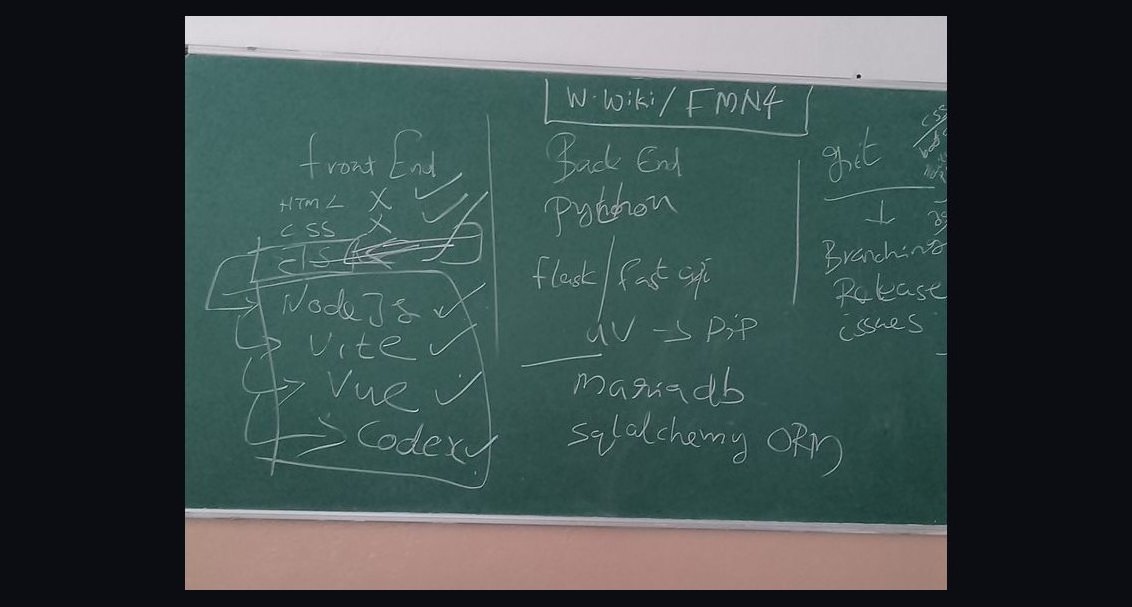 W.Wiki/FMN4
Front End
HTML X
CSS X
NodeJs
Vite
Vue
Codex
Back End
Python
flask/fast api
uv → pip
mariadb
sqlalchemy ORM
git
↓
Branching
Release
issues
css